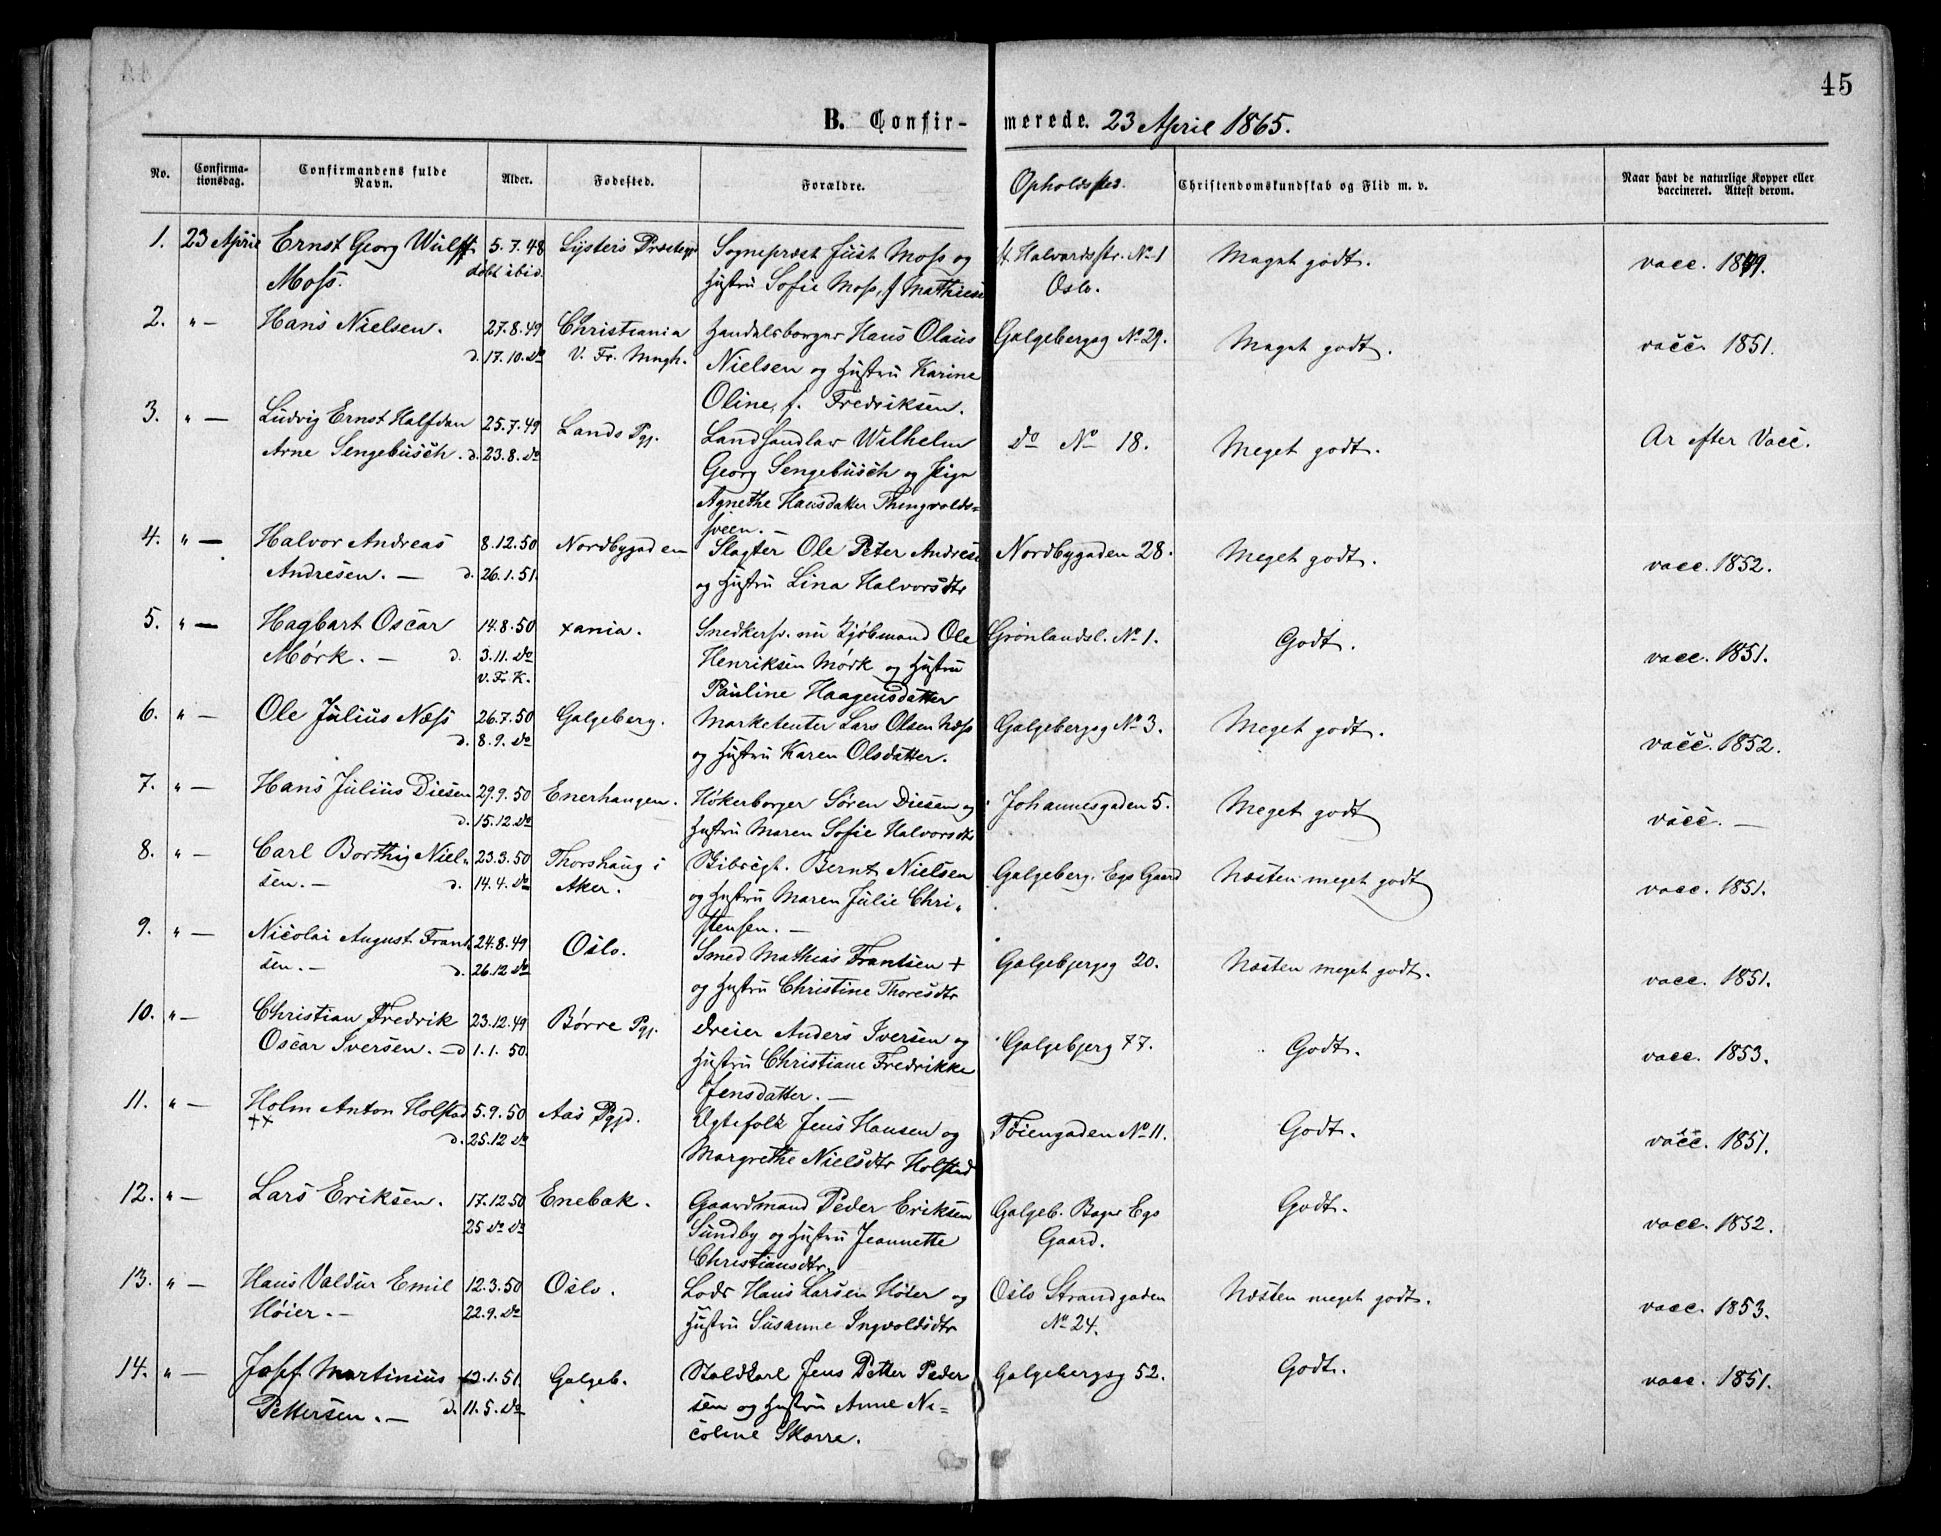 45
B. Confirmerede. 23 April 1865.
No. Confirmationsdag. Confirmandens fulde Navn. Alder. Fødested. Forældre. Opholdssted. Christendomskundskab og Flid m. v. Naar havt de naturlige Kopper eller vaccineret. Attest derom.
1. 23 April Ernst Georg Wulff 5.7.48 Lysters Sognepræst Just Moss og St. Halvardsstr. No 1 Meget godt. vacc. 1849.
Moss. døbt ibid. Hustru Sofie Moss, f. Oslo.
2. " — Hans Nielsen. 27.8.49 Christiania Handelsborger Hans Olaus Galgebergsg No 29. Meget godt. vacc. 1851.
d. 17.10. do V. Fr. Mngh. Nielsen og Hustru Karine
Oline, f. Fredriksen.
3. " — Ludvig Ernst Halfdan 25.7.49 Lands Pgj. Landhandler Wilhelm do No 18. Meget godt. Ar efter Vacc.
Arne Sengebusch. d. 23.8. do Georg Sengebusch og Pige
Agnethe Hansdatter Thingvolds=
sveen. —
4. " — Halvor Andreas 8.12.50 Nordbygaden Slagter Ole Peter Andresen Nordbygaden 28. Meget godt. vacc. 1852.
Andresen. — d. 26.1.51. og Hustru Lina Halvorsdtr
5. " — Hagbart Oscar 14.8.50 xania. Snedkersv. nu Kjøbmand Ole Grønlandsl. No 1. Godt. vacc. 1851.
Mørk. — d. 3.11. do Henriksen Mørk og Hustru
v. Fr. K. Pauline Haagensdatter
6. " — Ole Julius Næss 26.7.50 Galgeberg. Marketenter Lars Olsen Næss Galgebergsg No 3. Meget godt. vacc. 1852.
d. 8.9. do og Hustru Karen Olsdatter.
7. " — Hans Julius Diesen 29.9.50 Enerhaugen. Høkerborger Søren Diesen og Johannesgaden 5. Meget godt vacc. —
d. 15.12. do Hustru Maren Sofie Halvorsdtr
8. " — Carl Borthig Niel- 23.3.50 Thorshaug i Bernt Nielsen Galgeberg. Egs Gaard Næsten meget godt vacc. 1851.
sen. — d. 14.4. do Aker. og Hustru Maren Julie Chri-
stensen. —
9. " — Nicolai August Frant- 24.8.49 Oslo. Smed Mathias Frantsen + Galgebjergsg 20. Næsten meget godt. vacc. 1851.
sen. — d. 26.12 do og Hustru Christine Thoresdtr
10. " — Christian Fredrik 23.12.49 Børre Pgj. Dreier Anders Iversen og Galgebjerg 77. Godt. vacc. 1853.
Oscar Iversen. — d 1.1.50. Hustru Christiane Fredrikke
Jensdatter. —
11. " — Holm Anton Holstad 5.9.50 Aas Pgjd. Ægtefolk Jens Hansen og Tøiengaden No 11. Godt. vacc. 1851.
++ d. 25.12 do Margrethe Nielsdtr Holstad
12. " — Lars Eriksen. 17.12.50 Enebak. Gaardmand Peder Eriksen Galgeb. Bager Egs Godt. vacc. 1852.
25 do do Sundby og Hustru Jeannette Gaard.
Christiansdtr.
13. " — Hans Valdur Emil 12.3.50 Oslo. Lods Hans Larsen Høier og Oslo Strandgaden Næsten meget godt. vacc. 1853.
Høier. — 22.9. do Hustru Susanne Ingvoldsdtr No 24.
14. " — Josef Martinius 13.1.51. Galgeb. Staldkarl Jens Petter Peder Galgebergsg 52. Godt. vacc. 1851.
Pettersen. — d. 11.5. do sen og Hustru Anne Ni=
coline Skorre.